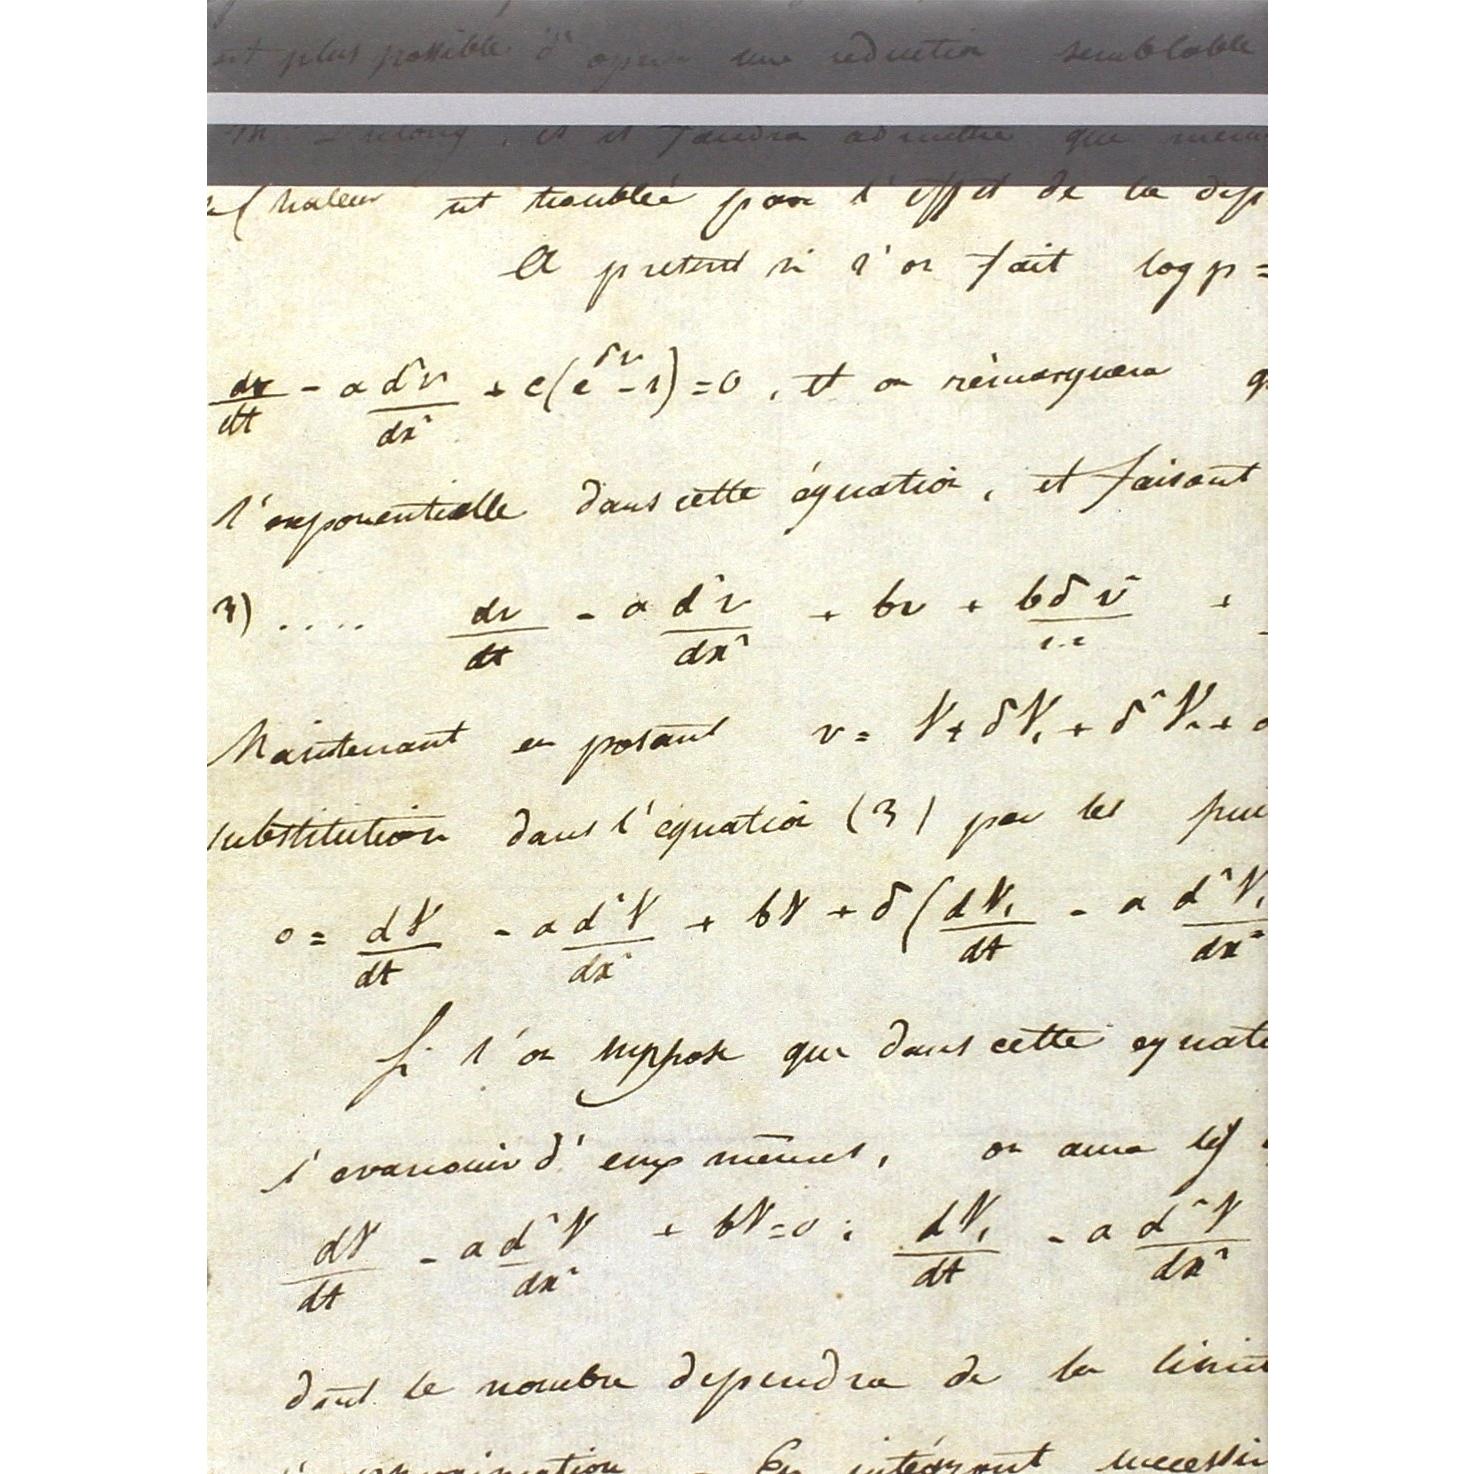 est plus possible d'opérer une reduction semblable
M. Dulong, et il faudra admettre que
chaleur est troublée par l'effet de la
A present si l'on fait log p =
dv/dt - a d²v/dx² + c(e^δv - 1) = 0, et on remarquera
l'exponentielle dans cette équation, et faisant
3) .... dv/dt - a d²v/dx² + bv + bδv²/1.2 +
Maintenant en posant v = V + δV₁ + δ²V₂ +
substitution dans l'équation (3) par les
0 = dV/dt - a d²V/dx² + bV + δ(dV₁/dt - a d²V₁/dx²
Si l'on suppose que dans cette
s'evanouir d'eux mêmes, on aura les
dV/dt - a d²V/dx² + bV = 0 ; dV₁/dt - a d²V/dx²
dont le nombre dependra de la
En intégrant